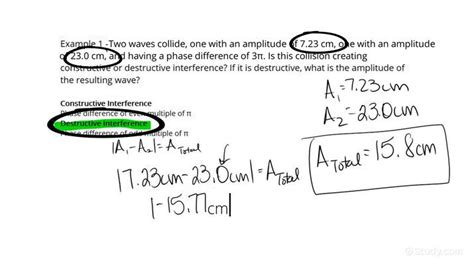 Example 1 -Two waves collide, one with an amplitude of 7.23 cm, one with an amplitude
of 23.0 cm, and having a phase difference of 3π. Is this collision creating
constructive or destructive interference? If it is destructive, what is the amplitude of
the resulting wave?
Constructive Interference
Phase difference of even multiple of π
Destructive Interference
Phase difference of odd multiple of π
|A₁-A₂|=A Total
|7.23cm-23.0cm|=A Total
|-15.77cm|
A₁=7.23cm
A₂=23.0cm
A Total=15.8cm
Study.com